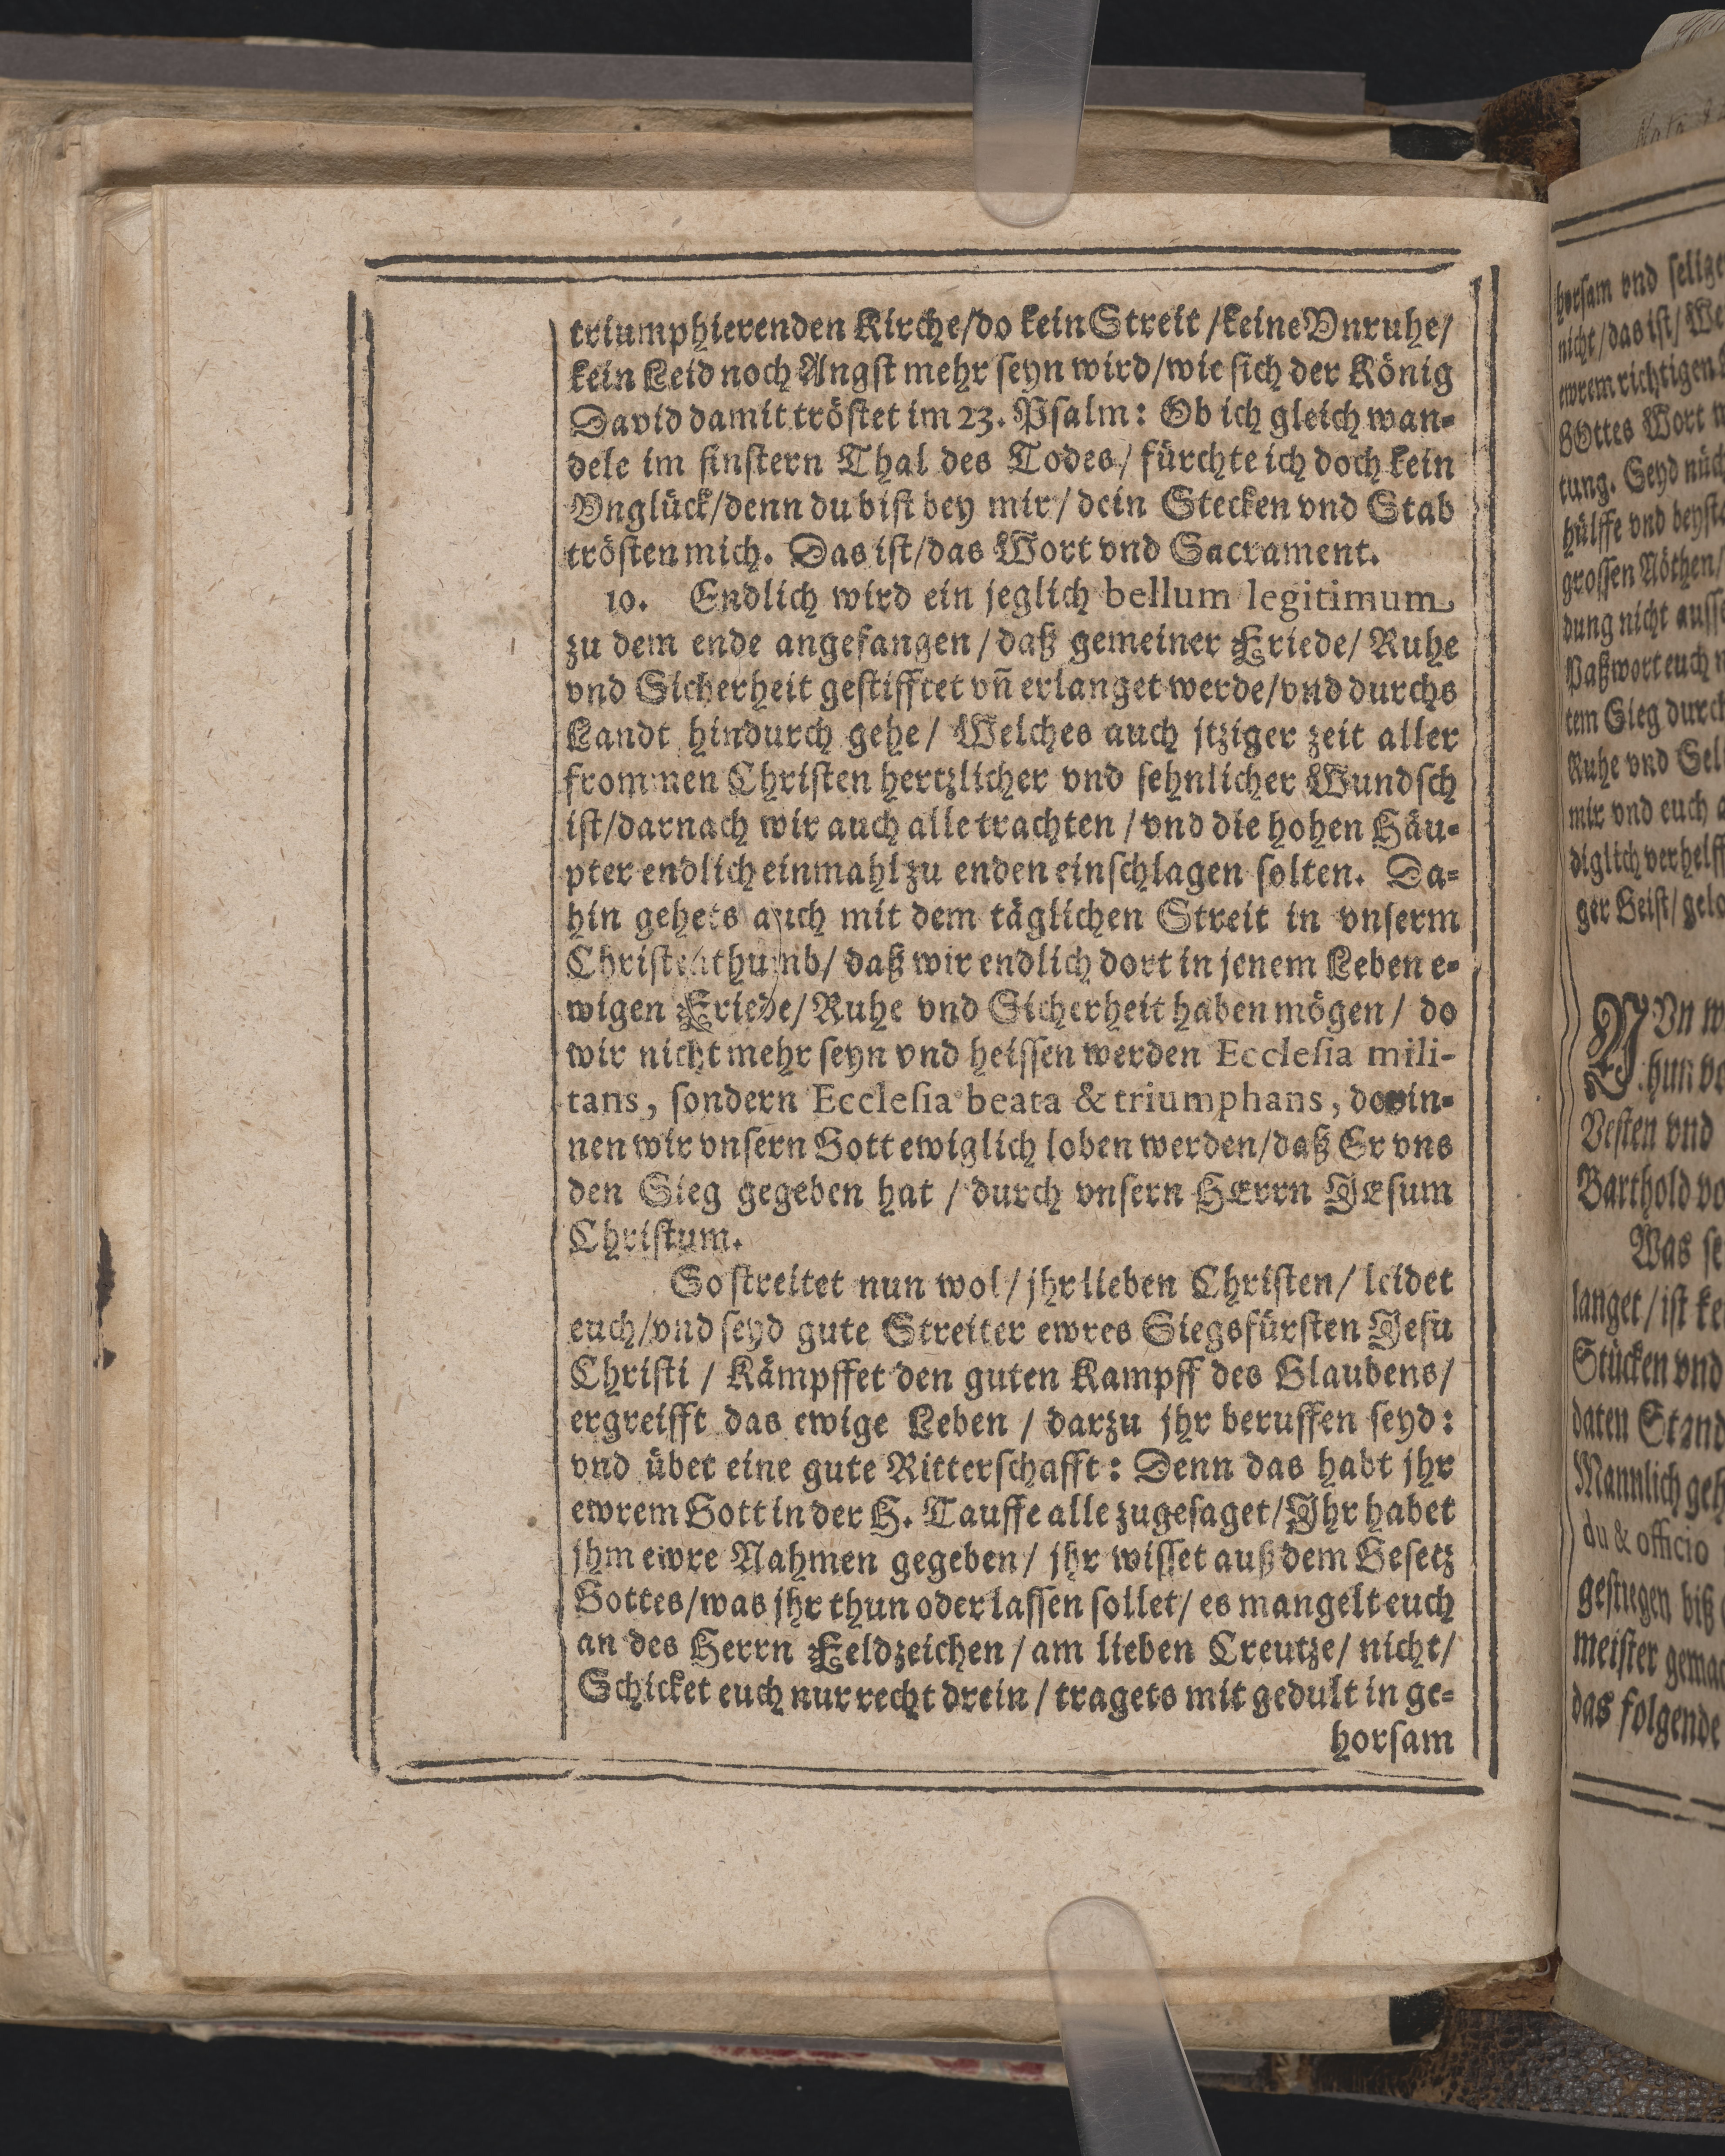 triumphierenden Kirche/do kein Streit/keine Vnruhe/
kein Leid noch Angst mehr seyn wird/wie sich der König
David damit tröstet im 23. Psalm: Ob ich gleich wan-
dele im finstern Thal des Todes/ fürchte ich doch kein
Vnglück/denn du bist bey mir/ dein Stecken vnd Stab
trösten mich. Das ist/das Wort vnd Sacrament.
10. Endlich wird ein jeglich bellum legitimum
zu dem ende angefangen/daß gemeiner Friede/ Ruhe
vnd Sicherheit gestifftet vñ erlanget werde/vnd durchs
Landt hindurch gehe/ Welches auch jtziger zeit aller
frommen Christen hertzlicher vnd sehnlicher Wundsch
ist/darnach wir auch alle trachten/vnd die hohen Häu-
pter endlich einmahl zu enden einschlagen solten. Da-
hin gehets auch mit dem täglichen Streit in vnserm
Christenthumb/ daß wir endlich dort in jenem Leben e-
wigen Friede/Ruhe vnd Sicherheit haben mögen/ do
wir nicht mehr seyn vnd heissen werden Ecclesia mili-
tans, sondern Ecclesia beata & triumphans, dorin-
nen wir vnsern Gott ewiglich loben werden/daß Er vns
den Sieg gegeben hat / durch vnsern HErrn JEsum
Christum.
So streitet nun wol/jhr lieben Christen/ leidet
euch/vnd seyd gute Streiter ewres Siegsfürsten Jesu
Christi / Kämpffet den guten Kampff des Glaubens/
ergreifft das ewige Leben / darzu jhr beruffen seyd:
vnd übet eine gute Ritterschafft: Denn das habt jhr
ewrem Gott in der H. Tauffe alle zugesaget/Jhr habet
jhm ewre Nahmen gegeben/ jhr wisset auß dem Gesetz
Gottes/was jhr thun oder lassen sollet/ es mangelt euch
an des Herrn Feldzeichen/am lieben Creutze/ nicht/
Schicket euch nur recht drein/tragets mit gedult in ge-
horsam
horsam vnd
nicht/das ist/
ewrem richtigen
GOttes Wort
tung. Seyd
hülffe vnd
grossen Nöthen/
dung nicht
Paßwort euch
tem Sieg
Ruhe vnd
mir vnd euch
diglich
ger Geist/
Vesten vnd
Barthold
Was
langet/ist
Stücken vnd
daten Stand
Mannlich
du & officio
gestiegen biß
meister
das folgende